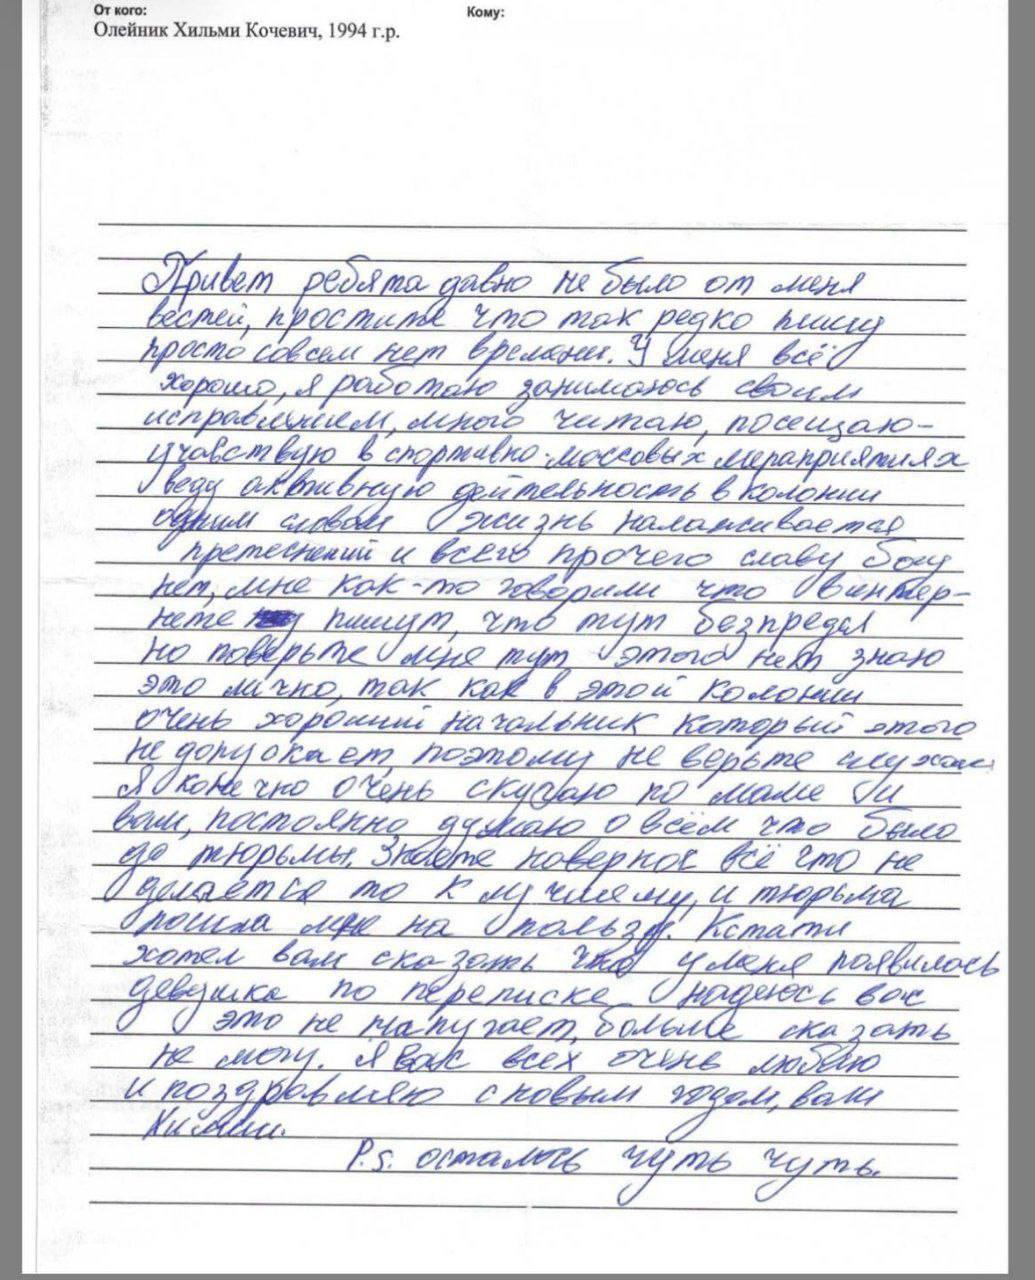 От кого:
Кому:
Олейник Хильми Кочевич, 1994 г.р.
Привет ребята давно не было от меня
вестей, простите что так редко пишу
просто совсем нет времени. У меня всё
хорошо, я работаю занимаюсь своим
исправлением, много читаю, посещаю-
учавствую в спортивно-массовых мераприятиях
веду активную деятельность в колонии
одним словом жизнь налаживается
претеснений и всего прочего славу богу
нет, мне как-то говорили что в интер-
нете пишут, что тут безпредел
но поверьте мне тут этого нет знаю
это лично, так как в этой колонии
очень хороший начальник который этого
не допускает, поэтому не верьте слухам
Я конечно очень скучаю по маме и
вам, постоянно думаю о всём что было
до тюрьмы. Знаете наверное всё что не
делается то к лучшему, и тюрьма
пошла мне на пользу. Кстати
хотел вам сказать что у меня появилась
девушка по переписке надеюсь вас
это не напугает, больше сказать
не могу. Я вас всех очень люблю
и поздравляю с новым годом, ваш
Хильми.
P.s. осталось чуть чуть.